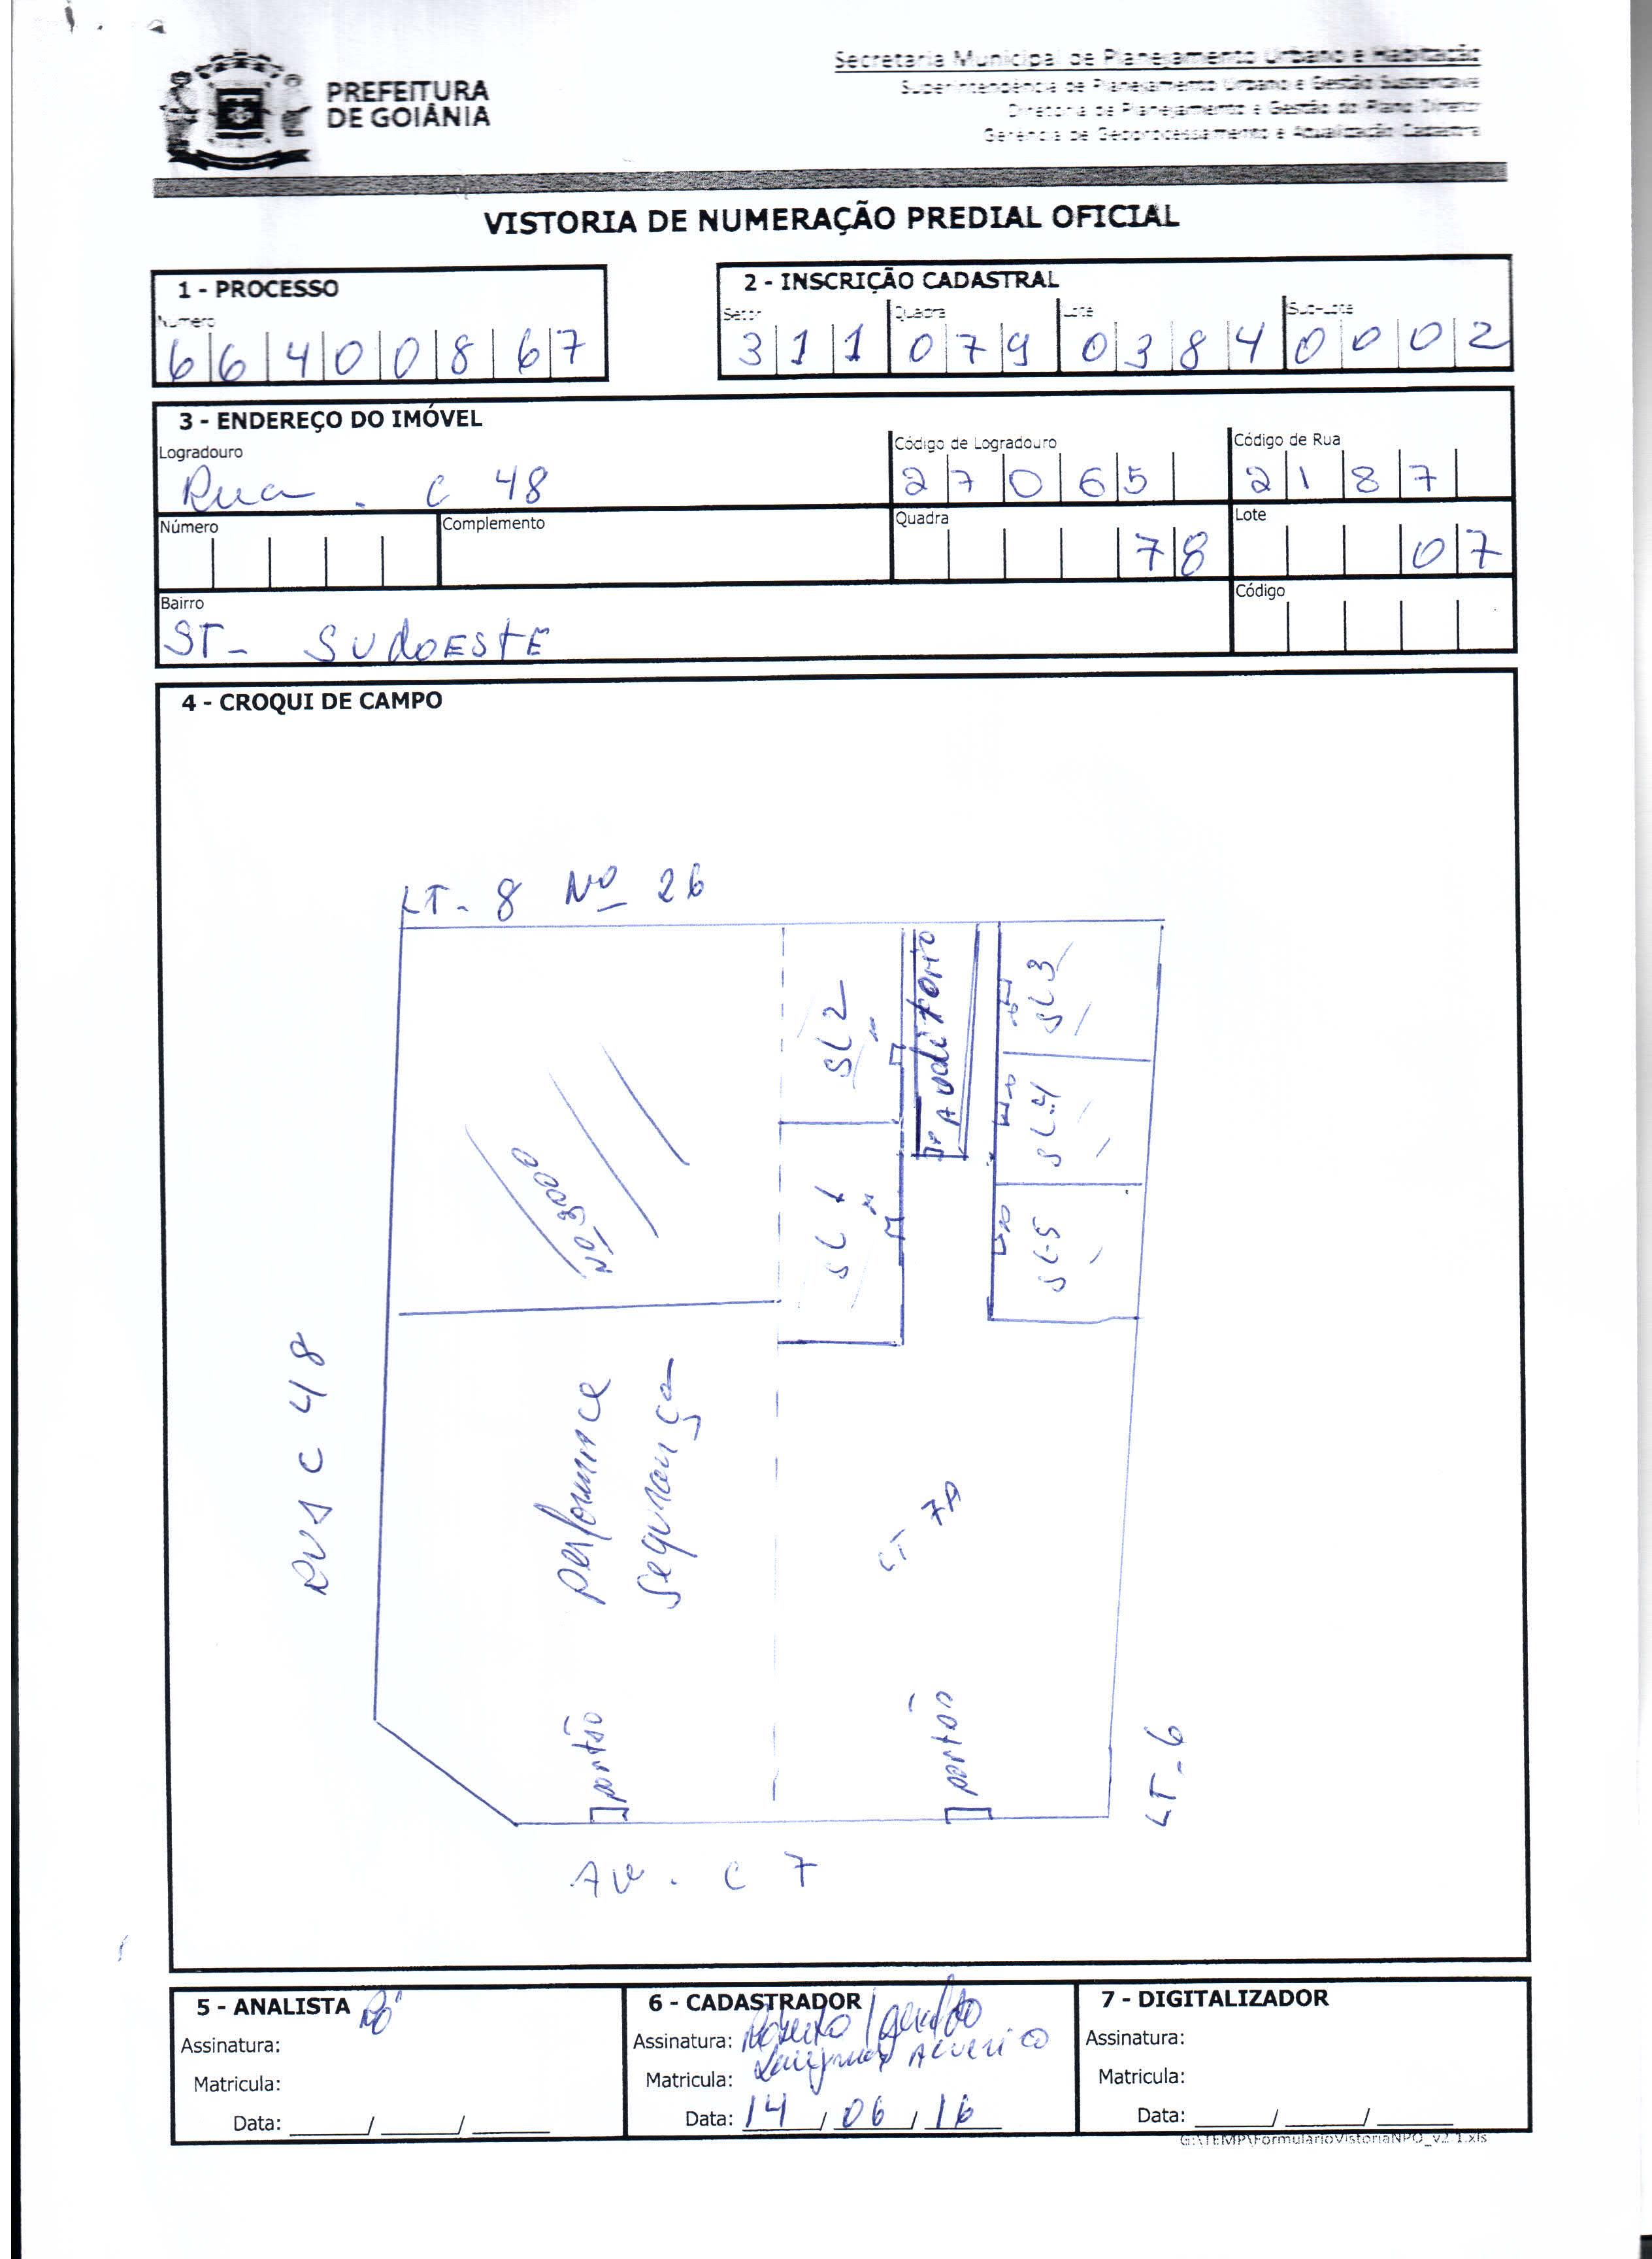 PREFEITURA
DE GOIÂNIA
Secretaria Municipal de Planejamento Urbano e Habitação
Superintendência de Planejamento Urbano e Gestão Sustentável
Diretoria de Planejamento e Gestão do Plano Diretor
Gerência de Geoprocessamento e Atualização Cadastral
VISTORIA DE NUMERAÇÃO PREDIAL OFICIAL
1 - PROCESSO
Número
6 6 4 0 0 8 6 7
2 - INSCRIÇÃO CADASTRAL
Setor Quadra Lote Sub-Lote
3 1 1 0 7 9 0 3 8 4 0 0 0 2
3 - ENDEREÇO DO IMÓVEL
Logradouro Código de Logradouro Código de Rua
Rua . C 48 2 7 0 6 5 2 1 8 7
Número Complemento Quadra Lote
7 8 0 7
Bairro Código
ST- SUDOESTE
4 - CROQUI DE CAMPO
LT- 8 Nº 26
SL 2
Auditorio
SL 3
SL 4
Nº 3000
SL 1
SL-5
RUA C 48
performance
segurança
LT 7A
portão
portão
LT-6
Av. C 7
5 - ANALISTA
Assinatura:
Matricula:
Data: ____/____/____
6 - CADASTRADOR
Assinatura: Roberto / Geraldo
Matricula:
Data: 14/06/16
7 - DIGITALIZADOR
Assinatura:
Matricula:
Data: ____/____/____
G:\TEMP\FormularioVistoriaNPO_v2 1.xls